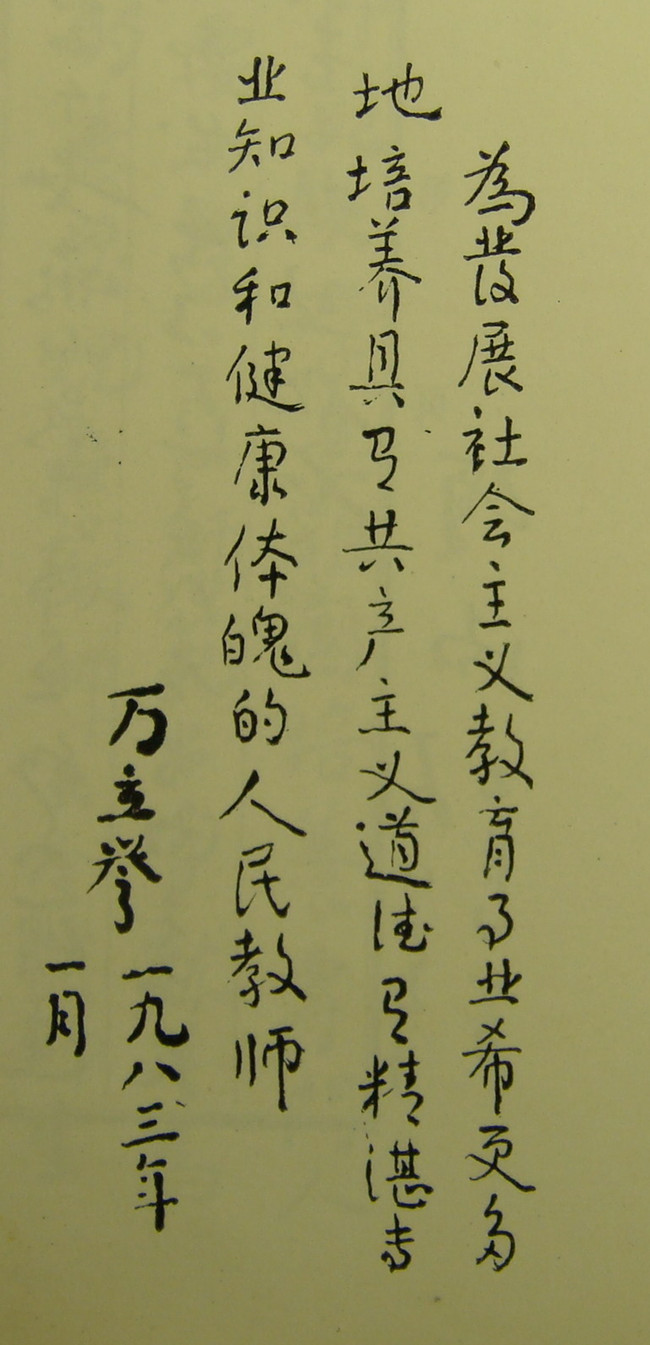 為发展社会主义教育事业希更多
地培养具有共产主义道德有精湛专
业知识和健康体魄的人民教师
万立誉
一九八三年
一月